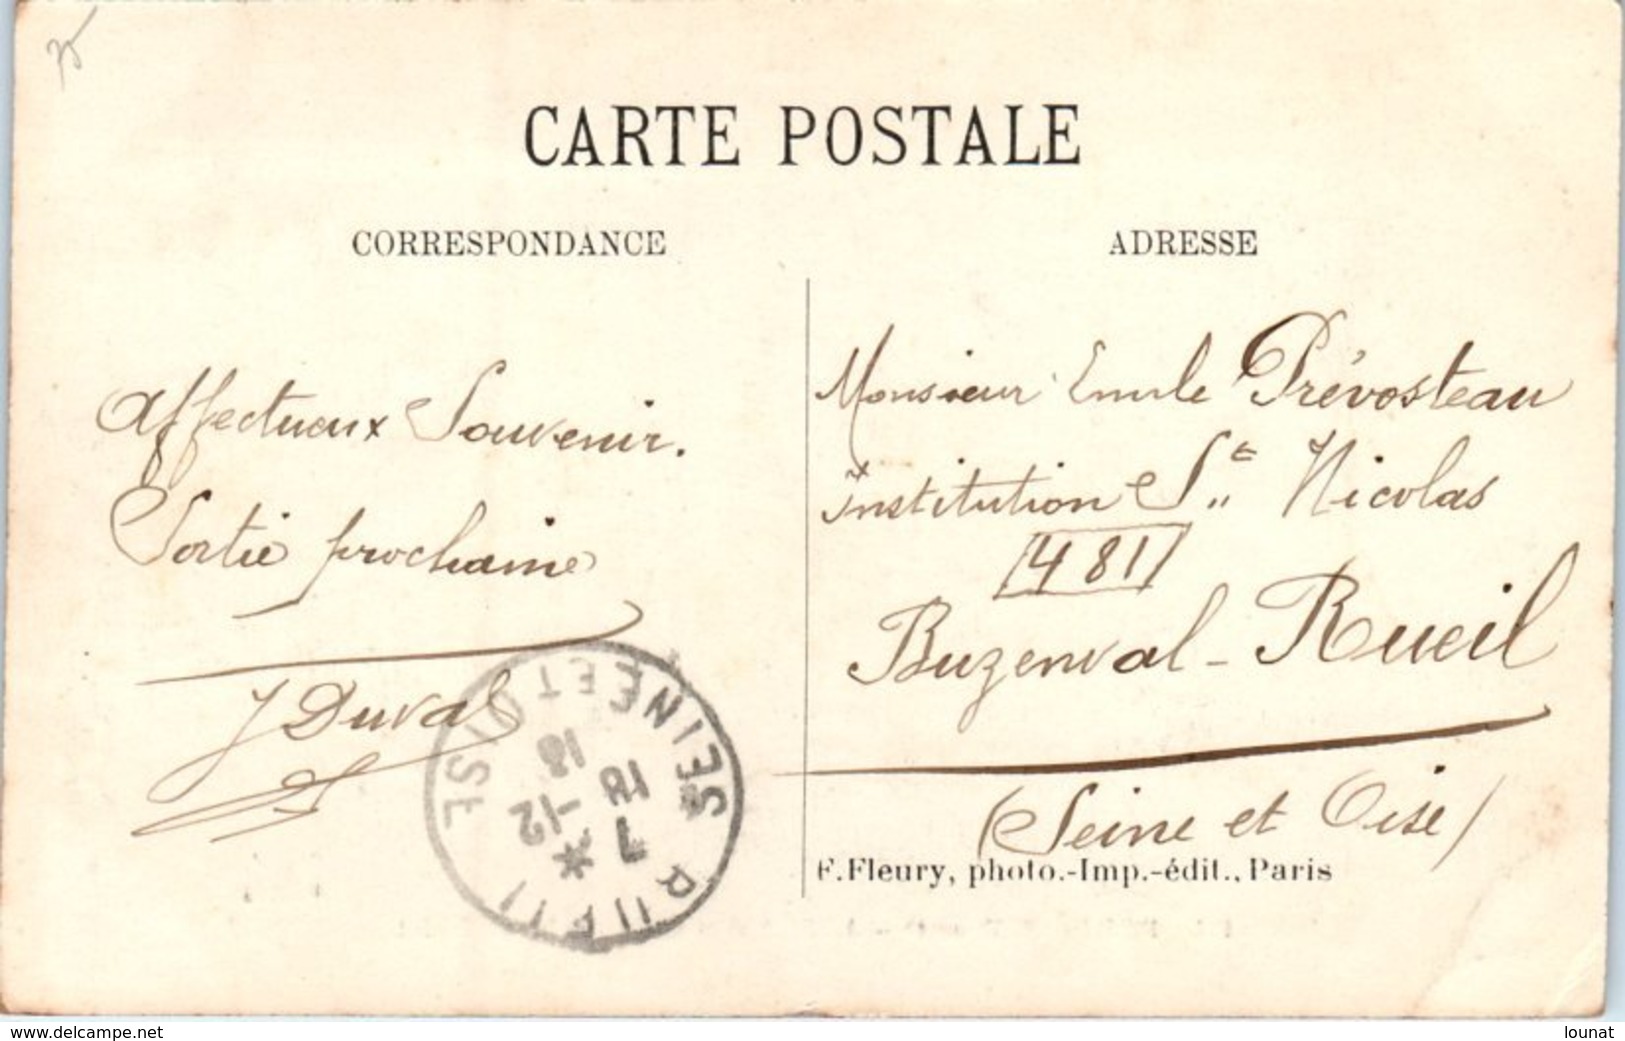 CARTE POSTALE
CORRESPONDANCE
Affectueux Souvenir.
Sortie prochaine
J Duval
ADRESSE
Monsieur Emile Prévosteau
institution St Nicolas
481
Buzenval - Rueil
(Seine et Oise)
F. Fleury, photo.-Imp.-édit., Paris
RUEIL
SEINE ET OISE
7 * 
18 -12
13
www.delcampe.net
lounat